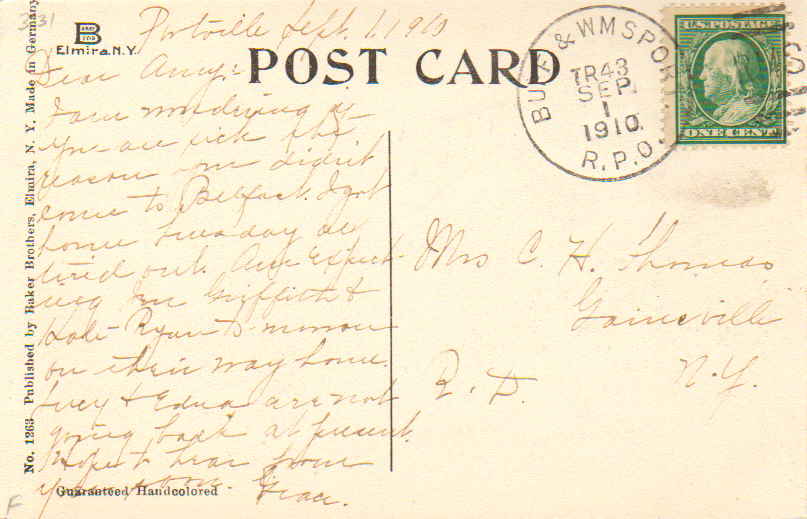 331
BAKER BROS
Elmira, N.Y.
POST CARD
Portville Sept. 1, 1910
Dear Amy:-
I am wondering if
you are sick the
reason you didn't
come to Belfast. I got
home Tuesday all
tired out. Am expect-
ing Mr Griffith &
Ryan to-morrow
on their way home.
Lucy & Edna are not
going back at present.
Hope to hear from
you soon. Grace.
BUFF. & WMSPORT.
TR43
SEP.
1
1910.
R.P.O.
U.S. POSTAGE
ONE CENT
Mrs C. H. Thomas
Gainesville
R. D. N.Y.
No. 1263 Published by Baker Brothers, Elmira, N. Y. Made in Germany
Guaranteed Handcolored
F